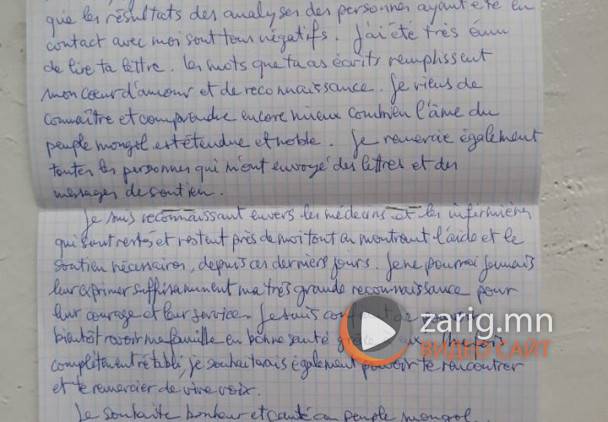 que les résultats des analyses des personnes ayant été en
contact avec moi sont tous négatifs. J'ai été très ému
de lire ta lettre. Les mots que tu as écrits remplissent
mon coeur d'amour et de reconnaissance. Je viens de
connaître et comprendre encore mieux combien l'âme du
peuple mongol est étendue et noble. Je remercie également
toutes les personnes qui m'ont envoyé des lettres et des
messages de soutien.
Je suis reconnaissant envers les médecins et les infirmières
qui sont restés et restent près de moi tout en montrant l'aide et le
soutien nécessaires, depuis ces derniers jours. Je ne pourrai jamais
leur exprimer suffisamment ma très grande reconnaissance pour
leur courage et leur service. Je suis
bientôt revoir ma famille en bonne santé
complètement rétabli, je souhaiterais également pouvoir te rencontrer
et te remercier de vive voix.
Je souhaite bonheur et santé au peuple mongol
zarig.mn
ВИДЕО САЙТ